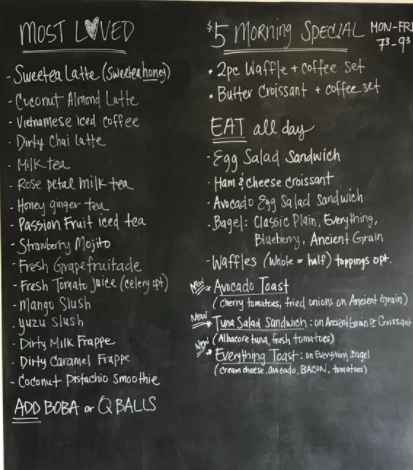 MOST LOVED
- Sweetea Latte (Sweetea honey)
- Coconut Almond Latte
- Vietnamese iced coffee
- Dirty Chai latte
- Milk tea
- Rose petal milk tea
- Honey ginger tea
- Passion Fruit iced tea
- Strawberry Mojito
- Fresh Grapefruitade
- Fresh Tomato Juice (celery opt)
- Mango Slush
- Yuzu Slush
- Dirty Milk Frappe
- Dirty Caramel Frappe
- Coconut Pistachio Smoothie
ADD BOBA or Q BALLS
$5 Morning SPECIAL MON-FRI
7:3-9:3
• 2pc Waffle + coffee set
• Butter Croissant + coffee set
EAT all day
- Egg Salad Sandwich
· Ham & cheese croissant
· Avocado Egg Salad Sandwich
· Bagel: Classic Plain, Everything,
Blueberry, Ancient Grain
- Waffles (Whole or half) toppings opt.
New Avocado Toast
(Cherry tomatoes, fried onions on Ancient Grain)
New Tuna Salad Sandwich: on Ancient Grain or Croissant
(Albacore tuna, fresh tomatoes)
New Everything Toast: on Everything Bagel
(cream cheese, avocado, BACON, tomatoes)